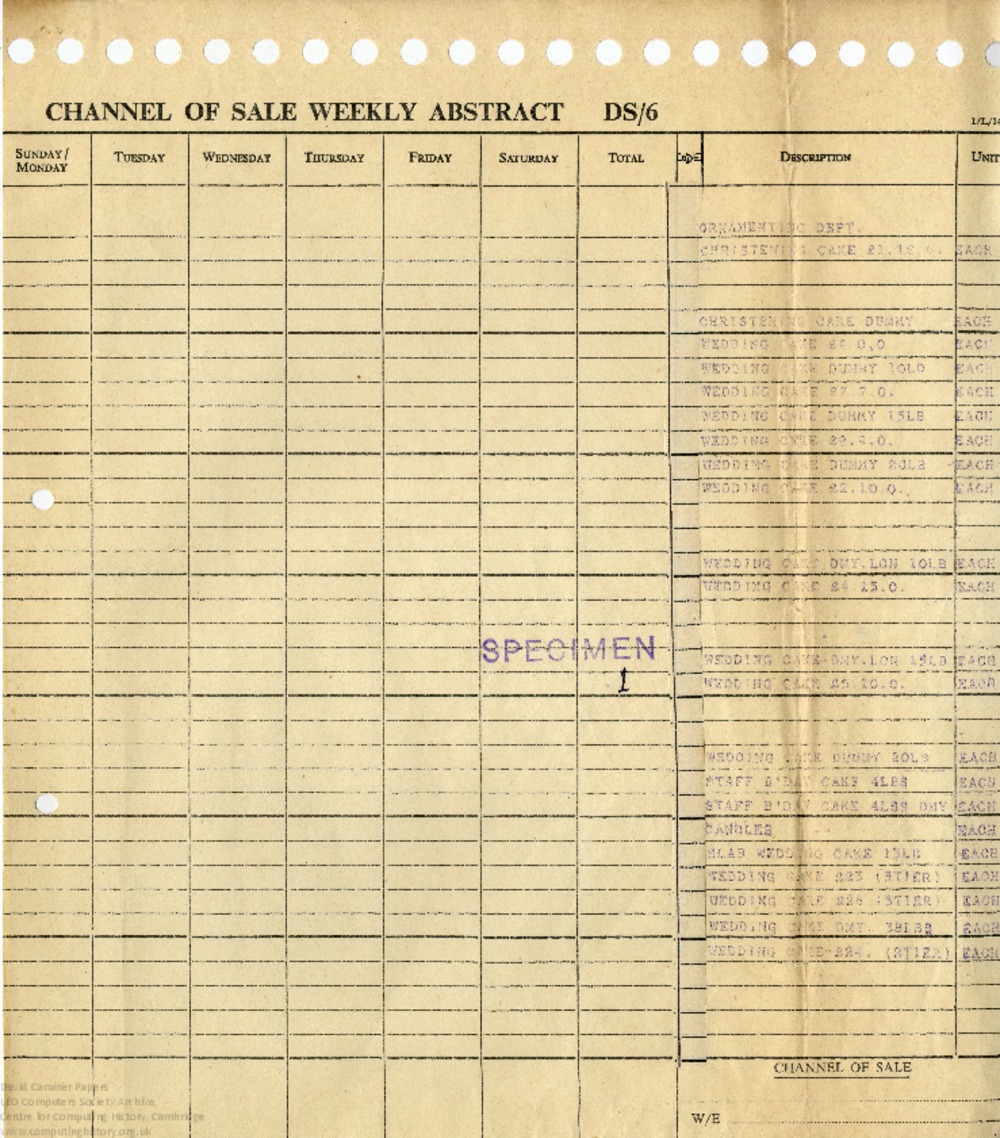 CHANNEL OF SALE WEEKLY ABSTRACT DS/6
SUNDAY/ MONDAY TUESDAY WEDNESDAY THURSDAY FRIDAY SATURDAY TOTAL CODE DESCRIPTION UNIT
ORNAMENTING DEPT.
CHRISTENING CAKE EACH
CHRISTENING CAKE DUMMY EACH
WEDDING CAKE £4.0.0 EACH
WEDDING CAKE DUMMY 10LB EACH
WEDDING CAKE £7.7.0. EACH
WEDDING CAKE DUMMY 15LB EACH
WEDDING CAKE EACH
WEDDING CAKE DUMMY 20LB EACH
WEDDING CAKE £2.10.0. EACH
WEDDING CAKE DMY.LON 10LB EACH
WEDDING CAKE £4.15.0. EACH
SPECIMEN
1
WEDDING CAKE DMY.LON 15LB EACH
WEDDING CAKE £5.10.0. EACH
WEDDING CAKE DUMMY 20LB EACH
STAFF B'DAY CAKE 4LBS EACH
STAFF B'DAY CAKE 4LBS DMY EACH
CANDLES EACH
SLAB WEDDING CAKE 13LB EACH
WEDDING CAKE £23 (3TIER) EACH
WEDDING CAKE £26 (3TIER) EACH
WEDDING CAKE DMY. 38LBS EACH
WEDDING CAKE £24. EACH
CHANNEL OF SALE
W/E
David Caminer Papers
LEO Computers Society Archive,
Centre for Computing History, Cambridge
www.computinghistory.org.uk